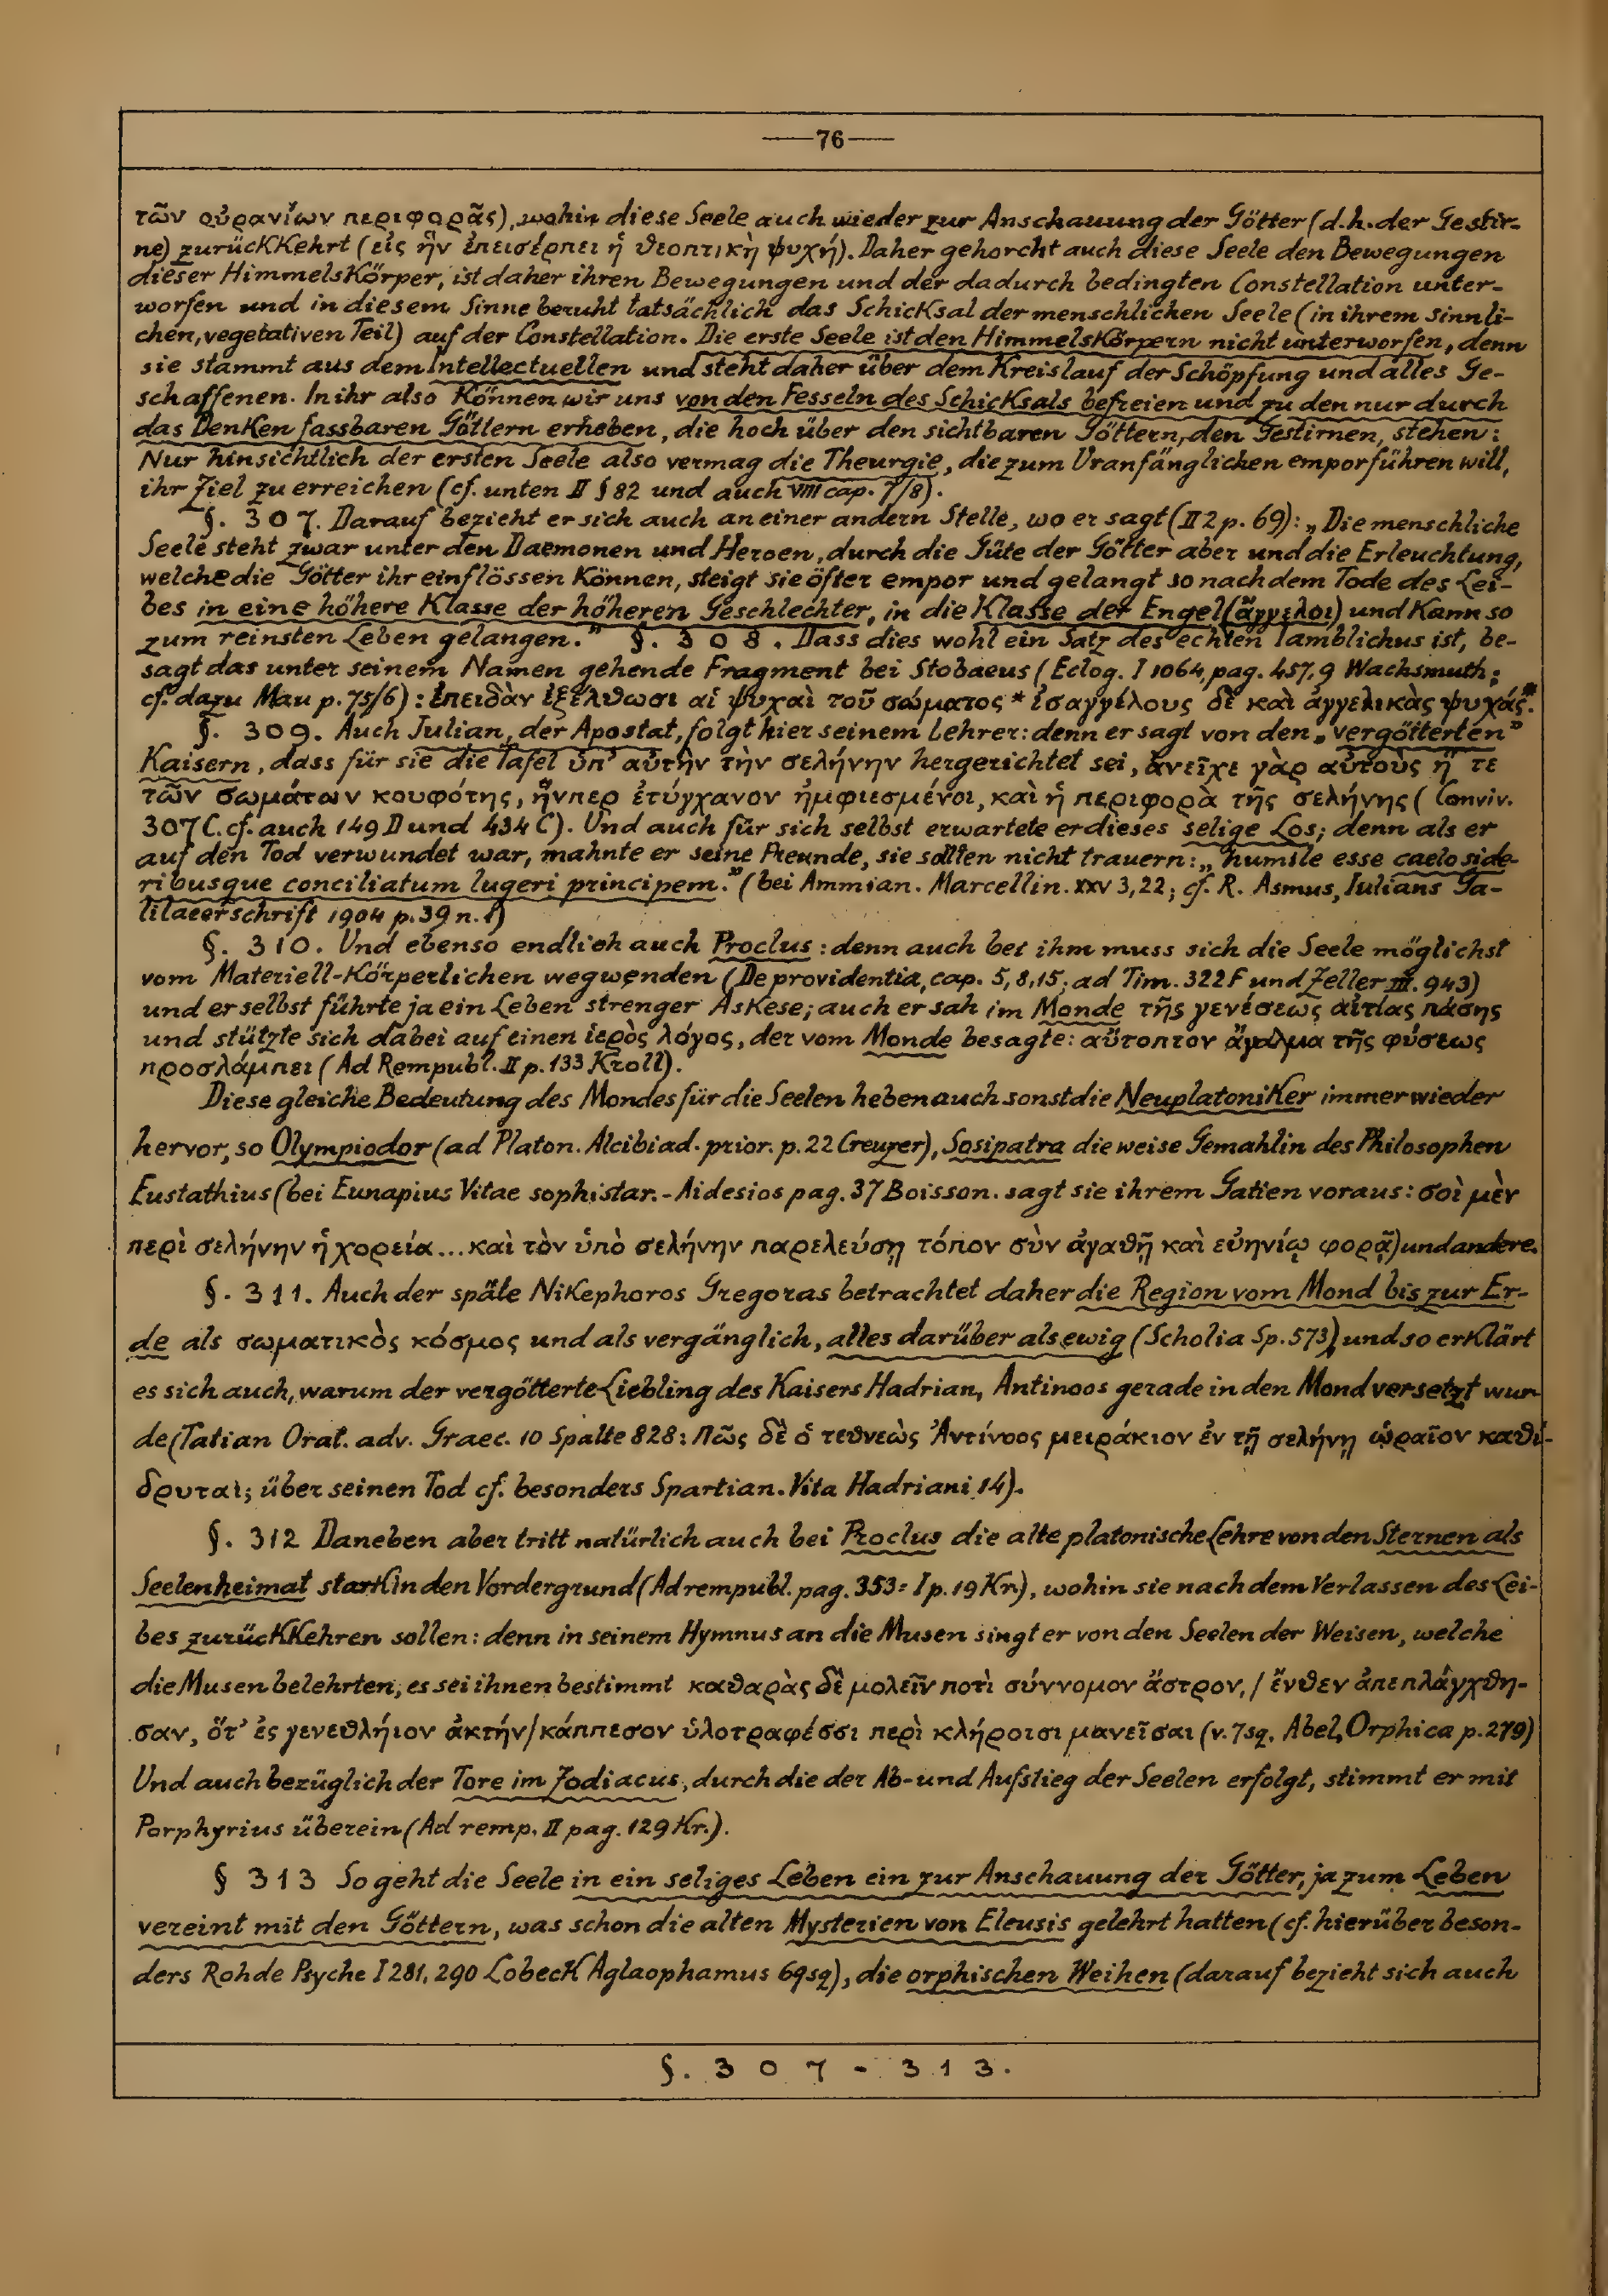 —76—
τῶν οὐρανίων περιφορᾶς), wohin diese Seele auch wieder zur Anschauung der Götter (d.h. der Gestir-
ne) zurückkehrt (εἰς ἣν ἐπεισέρπει ἡ θεοπτικὴ ψυχή). Daher gehorcht auch diese Seele den Bewegungen
dieser Himmelskörper, ist daher ihren Bewegungen und der dadurch bedingten Constellation unter-
worfen und in diesem Sinne beruht tatsächlich das Schicksal der menschlichen Seele (in ihrem sinnli-
chen, vegetativen Teil) auf der Constellation. Die erste Seele ist den Himmelskörpern nicht unterworfen, denn
sie stammt aus dem Intellectuellen und steht daher über dem Kreislauf der Schöpfung und alles Ge-
schaffenen. In ihr also können wir uns von den Fesseln des Schicksals befreien und zu den nur durch
das Denken fassbaren Göttern erheben, die hoch über den sichtbaren Göttern, den Gestirnen, stehen:
Nur hinsichtlich der ersten Seele also vermag die Theurgie, die zum Uranfänglichen emporführen will,
ihr Ziel zu erreichen (cf. unten II § 82 und auch VIII cap. 7/8).
§. 307. Darauf bezieht er sich auch an einer andern Stelle, wo er sagt (II 2 p. 69): „Die menschliche
Seele steht zwar unter den Daemonen und Heroen, durch die Güte der Götter aber und die Erleuchtung,
welche die Götter ihr einflössen können, steigt sie öfter empor und gelangt so nach dem Tode des Lei-
bes in eine höhere Klasse der höheren Geschlechter, in die Klasse der Engel (ἄγγελοι) und kann so
zum reinsten Leben gelangen.” §. 308. Dass dies wohl ein Satz des echten Iamblichus ist, be-
sagt das unter seinem Namen gehende Fragment bei Stobaeus (Eclog. I 1064, pag. 457,9 Wachsmuth;
cf. dazu Mau p. 75/6): ἐπειδὰν ἐξέλθωσι αἱ ψυχαὶ τοῦ σώματος * ἰσαγγέλους δὲ καὶ ἀγγελικὰς ψυχάς.*
§. 309. Auch Julian, der Apostat, folgt hier seinem Lehrer: denn er sagt von den „vergötterten”
Kaisern, dass für sie die Tafel ὑπ’ αὐτὴν τὴν σελήνην hergerichtet sei, ἀνεῖχε γὰρ αὐτοὺς ἥ τε
τῶν σωμάτων κουφότης, ἥνπερ ἐτύγχανον ἠμφιεσμένοι, καὶ ἡ περιφορὰ τῆς σελήνης (Conviv.
307 C. cf. auch 149 D und 434 C). Und auch für sich selbst erwartete er dieses selige Los; denn als er
auf den Tod verwundet war, mahnte er seine Freunde, sie sollten nicht trauern: „humile esse caelo side-
ribusque conciliatum lugeri principem.” (bei Ammian. Marcellin. XXV 3,22; cf. R. Asmus, Iulians Ga-
lilaeerschrift 1904 p. 39 n. 1)
§. 310. Und ebenso endlich auch Proclus: denn auch bei ihm muss sich die Seele möglichst
vom Materiell-Körperlichen wegwenden (De providentia, cap. 5,8,15; ad Tim. 322 F und Zeller III. 943)
und er selbst führte ja ein Leben strenger Askese; auch er sah im Monde τῆς γενέσεως αἰτίας πάσης
und stützte sich dabei auf einen ἱερὸς λόγος, der vom Monde besagte: αὔτοπτον ἄγαλμα τῆς φύσεως
προσλάμπει (Ad Rempubl. II p. 133 Kroll).
Diese gleiche Bedeutung des Mondes für die Seelen heben auch sonst die Neuplatoniker immer wieder
hervor, so Olympiodor (ad Platon. Alcibiad. prior. p. 22 Creuzer), Sosipatra die weise Gemahlin des Philosophen
Eustathius (bei Eunapius Vitae sophistar. - Aidesios pag. 37 Boisson. sagt sie ihrem Gatten voraus: σοὶ μὲν
περὶ σελήνην ἡ χορεία... καὶ τὸν ὑπὸ σελήνην παρελεύσῃ τόπον σὺν ἀγαθῇ καὶ εὐηνίῳ φορᾷ) und andere.
§. 311. Auch der späte Nikephoros Gregoras betrachtet daher die Region vom Mond bis zur Er-
de als σωματικὸς κόσμος und als vergänglich, alles darüber als ewig (Scholia Sp. 573) und so erklärt
es sich auch, warum der vergötterte Liebling des Kaisers Hadrian, Antinoos gerade in den Mond versetzt wur-
de (Tatian Orat. adv. Graec. 10 Spalte 828: Πῶς δὲ ὁ τεθνεὼς Ἀντίνοος μειράκιον ἐν τῇ σελήνῃ ὡραῖον καθί-
δρυται; über seinen Tod cf. besonders Spartian. Vita Hadriani 14).
§. 312 Daneben aber tritt natürlich auch bei Proclus die alte platonische Lehre von den Sternen als
Seelenheimat stark in den Vordergrund (Ad rempubl. pag. 353 = I p. 19 Kr), wohin sie nach dem Verlassen des Lei-
bes zurückkehren sollen: denn in seinem Hymnus an die Musen singt er von den Seelen der Weisen, welche
die Musen belehrten, es sei ihnen bestimmt καθαρὰς δὲ μολεῖν ποτὶ σύννομον ἄστρον, / ἔνθεν ἀπεπλάγχθη-
σαν, ὅτ’ ἐς γενεθλήιον ἀκτήν / κάππεσον ὑλοτραφέσσι περὶ κλήροισι μανεῖσαι (v. 7sq. Abel, Orphica p. 279)
Und auch bezüglich der Tore im Zodiacus, durch die der Ab- und Aufstieg der Seelen erfolgt, stimmt er mit
Porphyrius überein (Ad remp. II pag. 129 Kr.).
§ 313 So geht die Seele in ein seliges Leben ein zur Anschauung der Götter, ja zum Leben
vereint mit den Göttern, was schon die alten Mysterien von Eleusis gelehrt hatten (cf. hierüber beson-
ders Rohde Psyche I 281, 290 Lobeck Aglaophamus 69sq), die orphischen Weihen (darauf bezieht sich auch
§. 307 - 313.